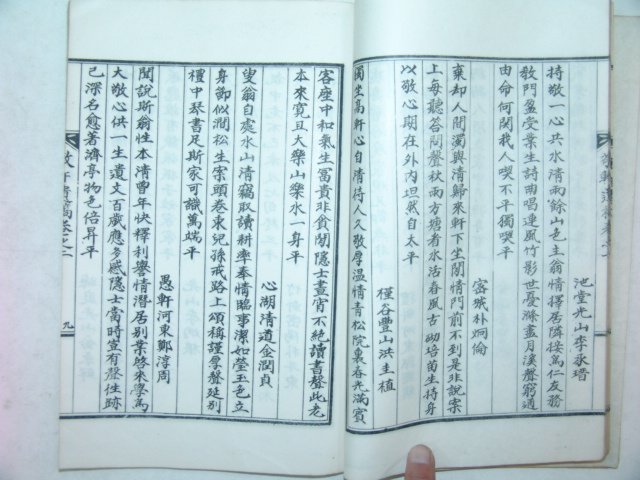 池堂光山李承瑨
持敬一心共水清雨餘山色主翁情擇居隣接萬仁友務
敎門盈受業生詩曲唱連風竹影世憂滌盡月溪聲窮通
由命何関我人喫不平獨喫平
密城朴炯倫
棄却人間濁與清歸來軒下坐閒情門前不到是非說案
上每聽答問聲秋雨方塘看水活春風古砌培苗生持身
以敬心期在外內坦然自太平
槿谷豊山洪圭植
獨坐高軒心自清待人久敬厚温情青松院裏春光滿賓
客座中和氣生富貴非貪閒隱士晝宵不絶讀書聲此老
本來寬且大樂山樂水一身平
心湖清道金潤貞
叟翁自處水山清竊取讀耕率奉情臨事潔如瑩玉色立
身卻似澗松生案頭卷束兒孫戒路上頌稱謹厚聲延別
禮中琴書足斯家可識萬端平
愚軒河東鄭淳周
聞說斯翁性本清曾年快釋利譽情潛居別業啓來學篤
大敬心供一生遺文百歲應多感隱士當時豈有聲性跡
已深名愈著濟亭物色倍昇平
九